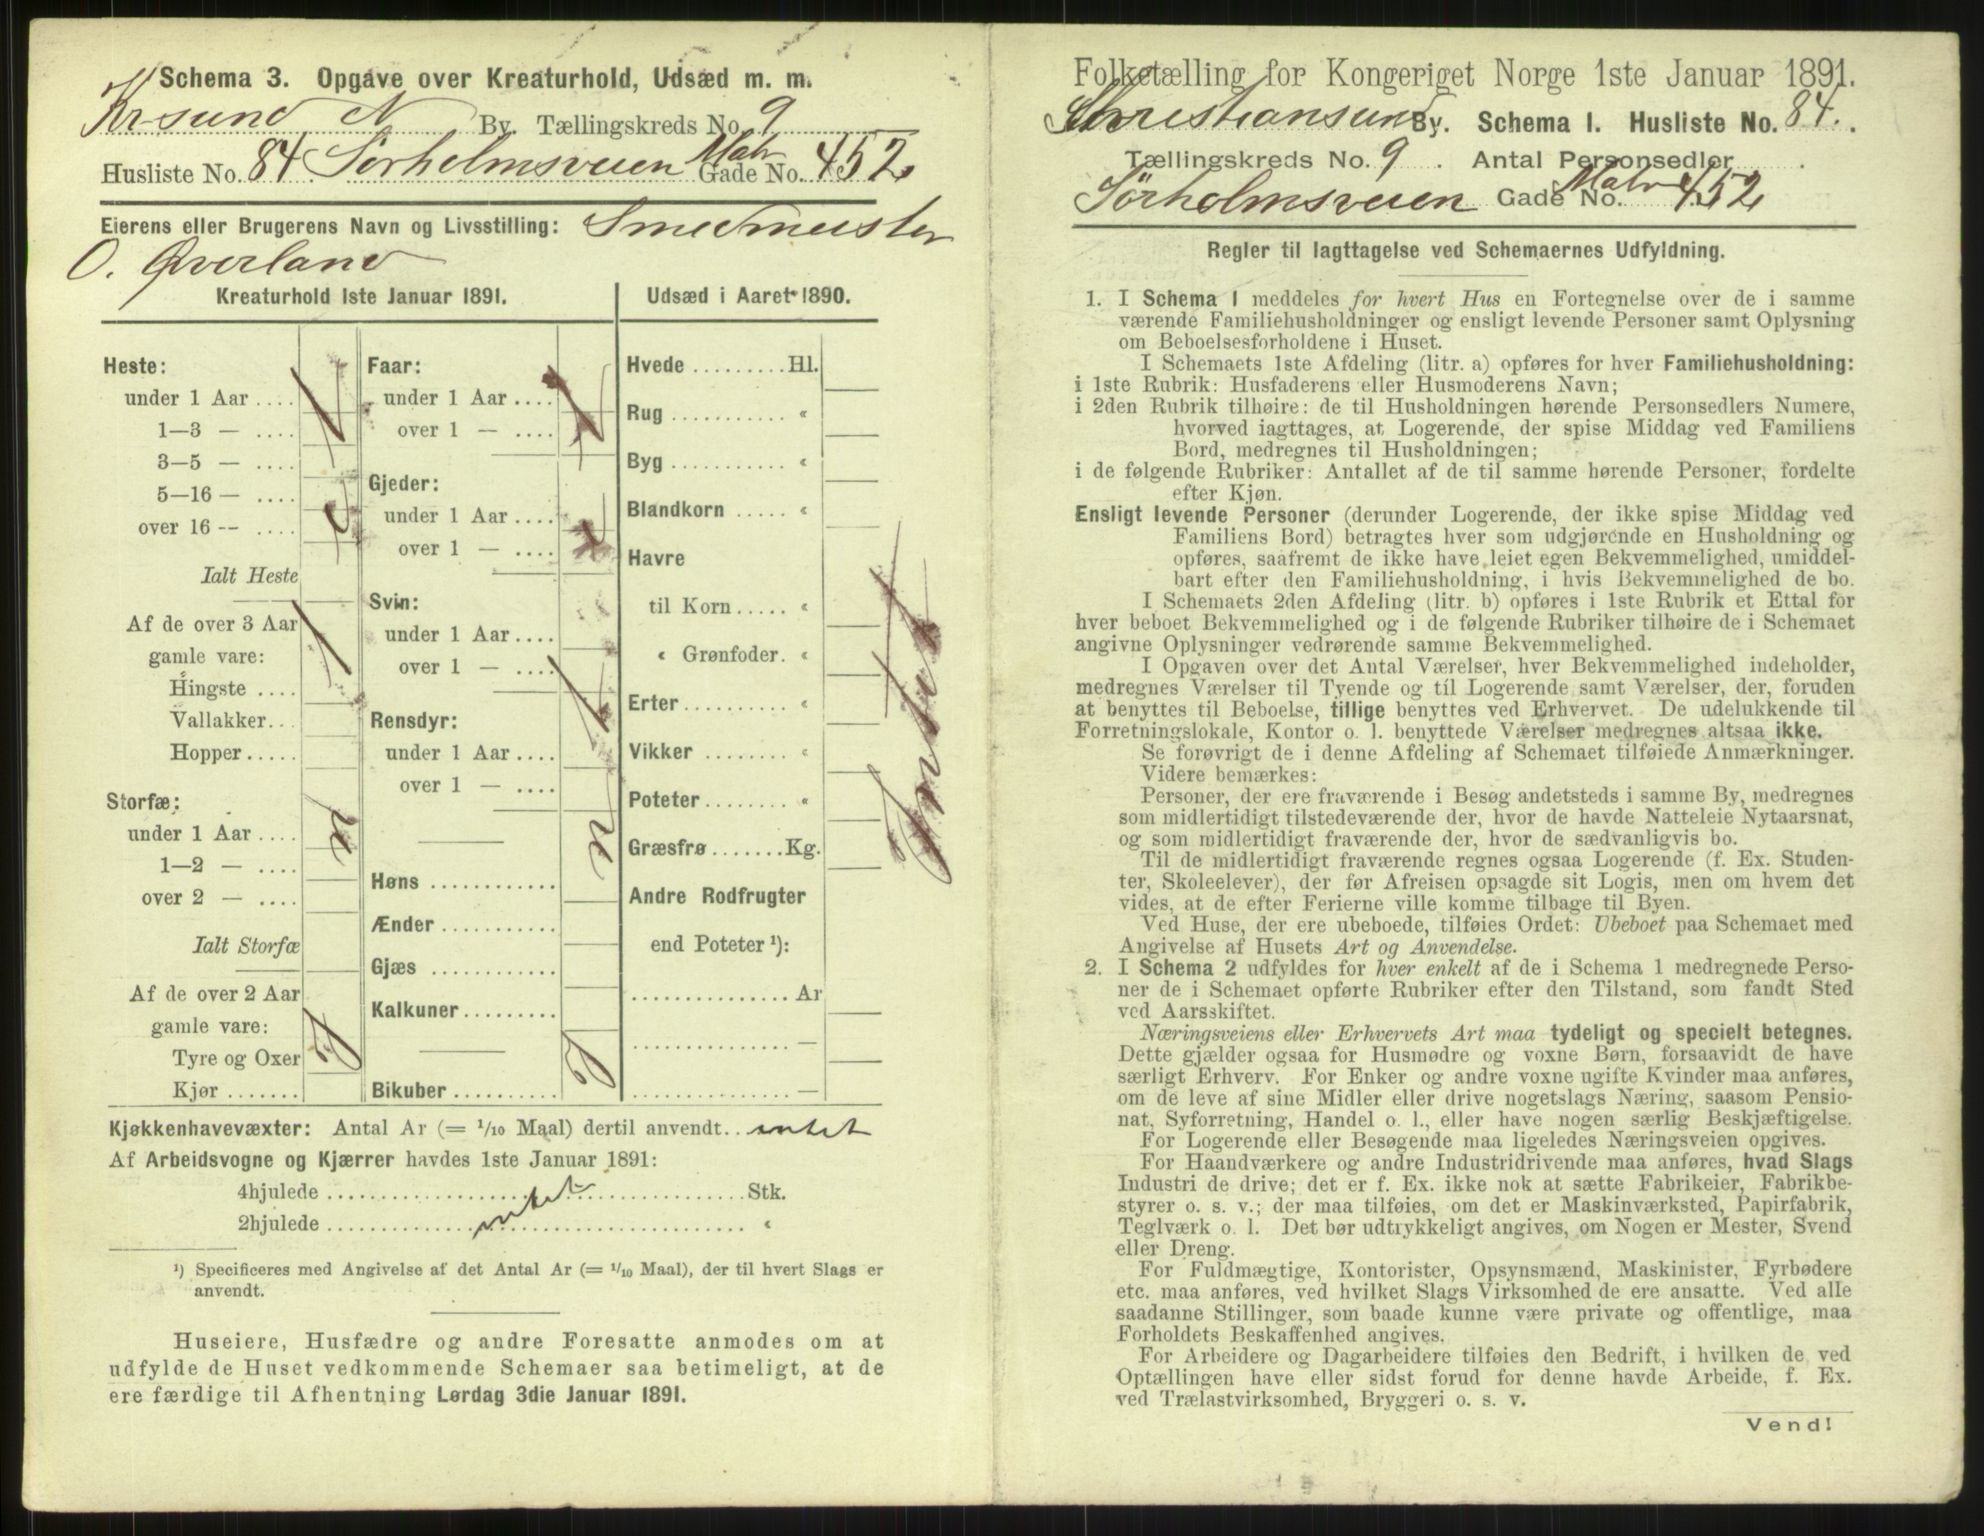 Schema 3. Opgave over Kreaturhold, Udsæd m. m.
Kr-sund N By. Tællingskreds No. 9
Husliste No. 84 Sørholmsveien Matr Gade No. 452
Eierens eller Brugerens Navn og Livsstilling: Smedmester
O. Øverland
Kreaturhold 1ste Januar 1891.
Heste:
under 1 Aar ....
1—3 — ....
3—5 — ....
5—16 — ....
over 16 -- ....
Ialt Heste
Af de over 3 Aar
gamle vare:
Hingste ....
Vallakker...
Hopper.....
Storfæ:
under 1 Aar ....
1—2 — ....
over 2 — ....
Ialt Storfæ
Af de over 2 Aar
gamle vare:
Tyre og Oxer
Kjør .......
Faar:
under 1 Aar....
over 1 — ....
Gjeder:
under 1 Aar....
over 1 — ....
Svin:
under 1 Aar....
over 1 — ....
Rensdyr:
under 1 Aar....
over 1 — ....
Høns ............
Ænder...........
Gjæs ............
Kalkuner.........
Bikuber ..........
Udsæd i Aaret 1890.
Hvede .........Hl.
Rug ............ «
Byg ............ «
Blandkorn ..... «
Havre
til Korn..... «
« Grønfoder. «
Erter........... «
Vikker ........ «
Poteter........ «
Græsfrø.......Kg.
Andre Rodfrugter
end Poteter ¹):
...............Ar
............... —
............... —
Intet
Kjøkkenhavevæxter: Antal Ar (= 1/10 Maal) dertil anvendt.. intet
Af Arbeidsvogne og Kjærrer havdes 1ste Januar 1891:
4hjulede ........................................Stk.
2hjulede ........................................ «
intet
¹) Specificeres med Angivelse af det Antal Ar (= 1/10 Maal), der til hvert Slags er
anvendt.
Huseiere, Husfædre og andre Foresatte anmodes om at
udfylde de Huset vedkommende Schemaer saa betimeligt, at de
ere færdige til Afhentning Lørdag 3die Januar 1891.
Folketælling for Kongeriget Norge 1ste Januar 1891.
Christiansund By. Schema 1. Husliste No. 84.
Tællingskreds No. 9 . Antal Personsedler .
Sørholmsveien Gade No. Matr 452
Regler til Iagttagelse ved Schemaernes Udfyldning.
1. I Schema 1 meddeles for hvert Hus en Fortegnelse over de i samme
værende Familiehusholdninger og ensligt levende Personer samt Oplysning
om Beboelsesforholdene i Huset.
I Schemaets 1ste Afdeling (litr. a) opføres for hver Familiehusholdning:
i 1ste Rubrik: Husfaderens eller Husmoderens Navn;
i 2den Rubrik tilhøire: de til Husholdningen hørende Personsedlers Numere,
hvorved iagttages, at Logerende, der spise Middag ved Familiens
Bord, medregnes til Husholdningen;
i de følgende Rubriker: Antallet af de til samme hørende Personer, fordelte
efter Kjøn.
Ensligt levende Personer (derunder Logerende, der ikke spise Middag ved
Familiens Bord) betragtes hver som udgjørende en Husholdning og
opføres, saafremt de ikke have leiet egen Bekvemmelighed, umiddel-
bart efter den Familiehusholdning, i hvis Bekvemmelighed de bo.
I Schemaets 2den Afdeling (litr. b) opføres i 1ste Rubrik et Ettal for
hver beboet Bekvemmelighed og i de følgende Rubriker tilhøire de i Schemaet
angivne Oplysninger vedrørende samme Bekvemmelighed.
I Opgaven over det Antal Værelser, hver Bekvemmelighed indeholder,
medregnes Værelser til Tyende og til Logerende samt Værelser, der, foruden
at benyttes til Beboelse, tillige benyttes ved Erhvervet. De udelukkende til
Forretningslokale, Kontor o. l. benyttede Værelser medregnes altsaa ikke.
Se forøvrigt de i denne Afdeling af Schemaet tilføiede Anmærkninger.
Videre bemærkes:
Personer, der ere fraværende i Besøg andetsteds i samme By, medregnes
som midlertidigt tilstedeværende der, hvor de havde Natteleie Nytaarsnat,
og som midlertidigt fraværende der, hvor de sædvanligvis bo.
Til de midlertidigt fraværende regnes ogsaa Logerende (f. Ex. Studen-
ter, Skoleelever), der før Afreisen opsagde sit Logis, men om hvem det
vides, at de efter Ferierne ville komme tilbage til Byen.
Ved Huse, der ere ubeboede, tilføies Ordet: Ubeboet paa Schemaet med
Angivelse af Husets Art og Anvendelse.
2. I Schema 2 udfyldes for hver enkelt af de i Schema 1 medregnede Perso-
ner de i Schemaet opførte Rubriker efter den Tilstand, som fandt Sted
ved Aarsskiftet.
Næringsveiens eller Erhvervets Art maa tydeligt og specielt betegnes.
Dette gjælder ogsaa for Husmødre og voxne Børn, forsaavidt de have
særligt Erhverv. For Enker og andre voxne ugifte Kvinder maa anføres,
om de leve af sine Midler eller drive nogetslags Næring, saasom Pensio-
nat, Syforretning, Handel o. l., eller have nogen særlig Beskjæftigelse.
For Logerende eller Besøgende maa ligeledes Næringsveien opgives.
For Haandværkere og andre Industridrivende maa anføres, hvad Slags
Industri de drive; det er f. Ex. ikke nok at sætte Fabrikeier, Fabrikbe-
styrer o. s. v.; der maa tilføies, om det er Maskinværksted, Papirfabrik,
Teglværk o. l. Det bør udtrykkeligt angives, om Nogen er Mester, Svend
eller Dreng.
For Fuldmægtige, Kontorister, Opsynsmænd, Maskinister, Fyrbødere
etc. maa anføres, ved hvilket Slags Virksomhed de ere ansatte. Ved alle
saadanne Stillinger, som baade kunne være private og offentlige, maa
Forholdets Beskaffenhed angives.
For Arbeidere og Dagarbeidere tilføies den Bedrift, i hvilken de ved
Optællingen have eller sidst forud for denne havde Arbeide, f. Ex.
ved Trælastvirksomhed, Bryggeri o. s. v.
Vend!